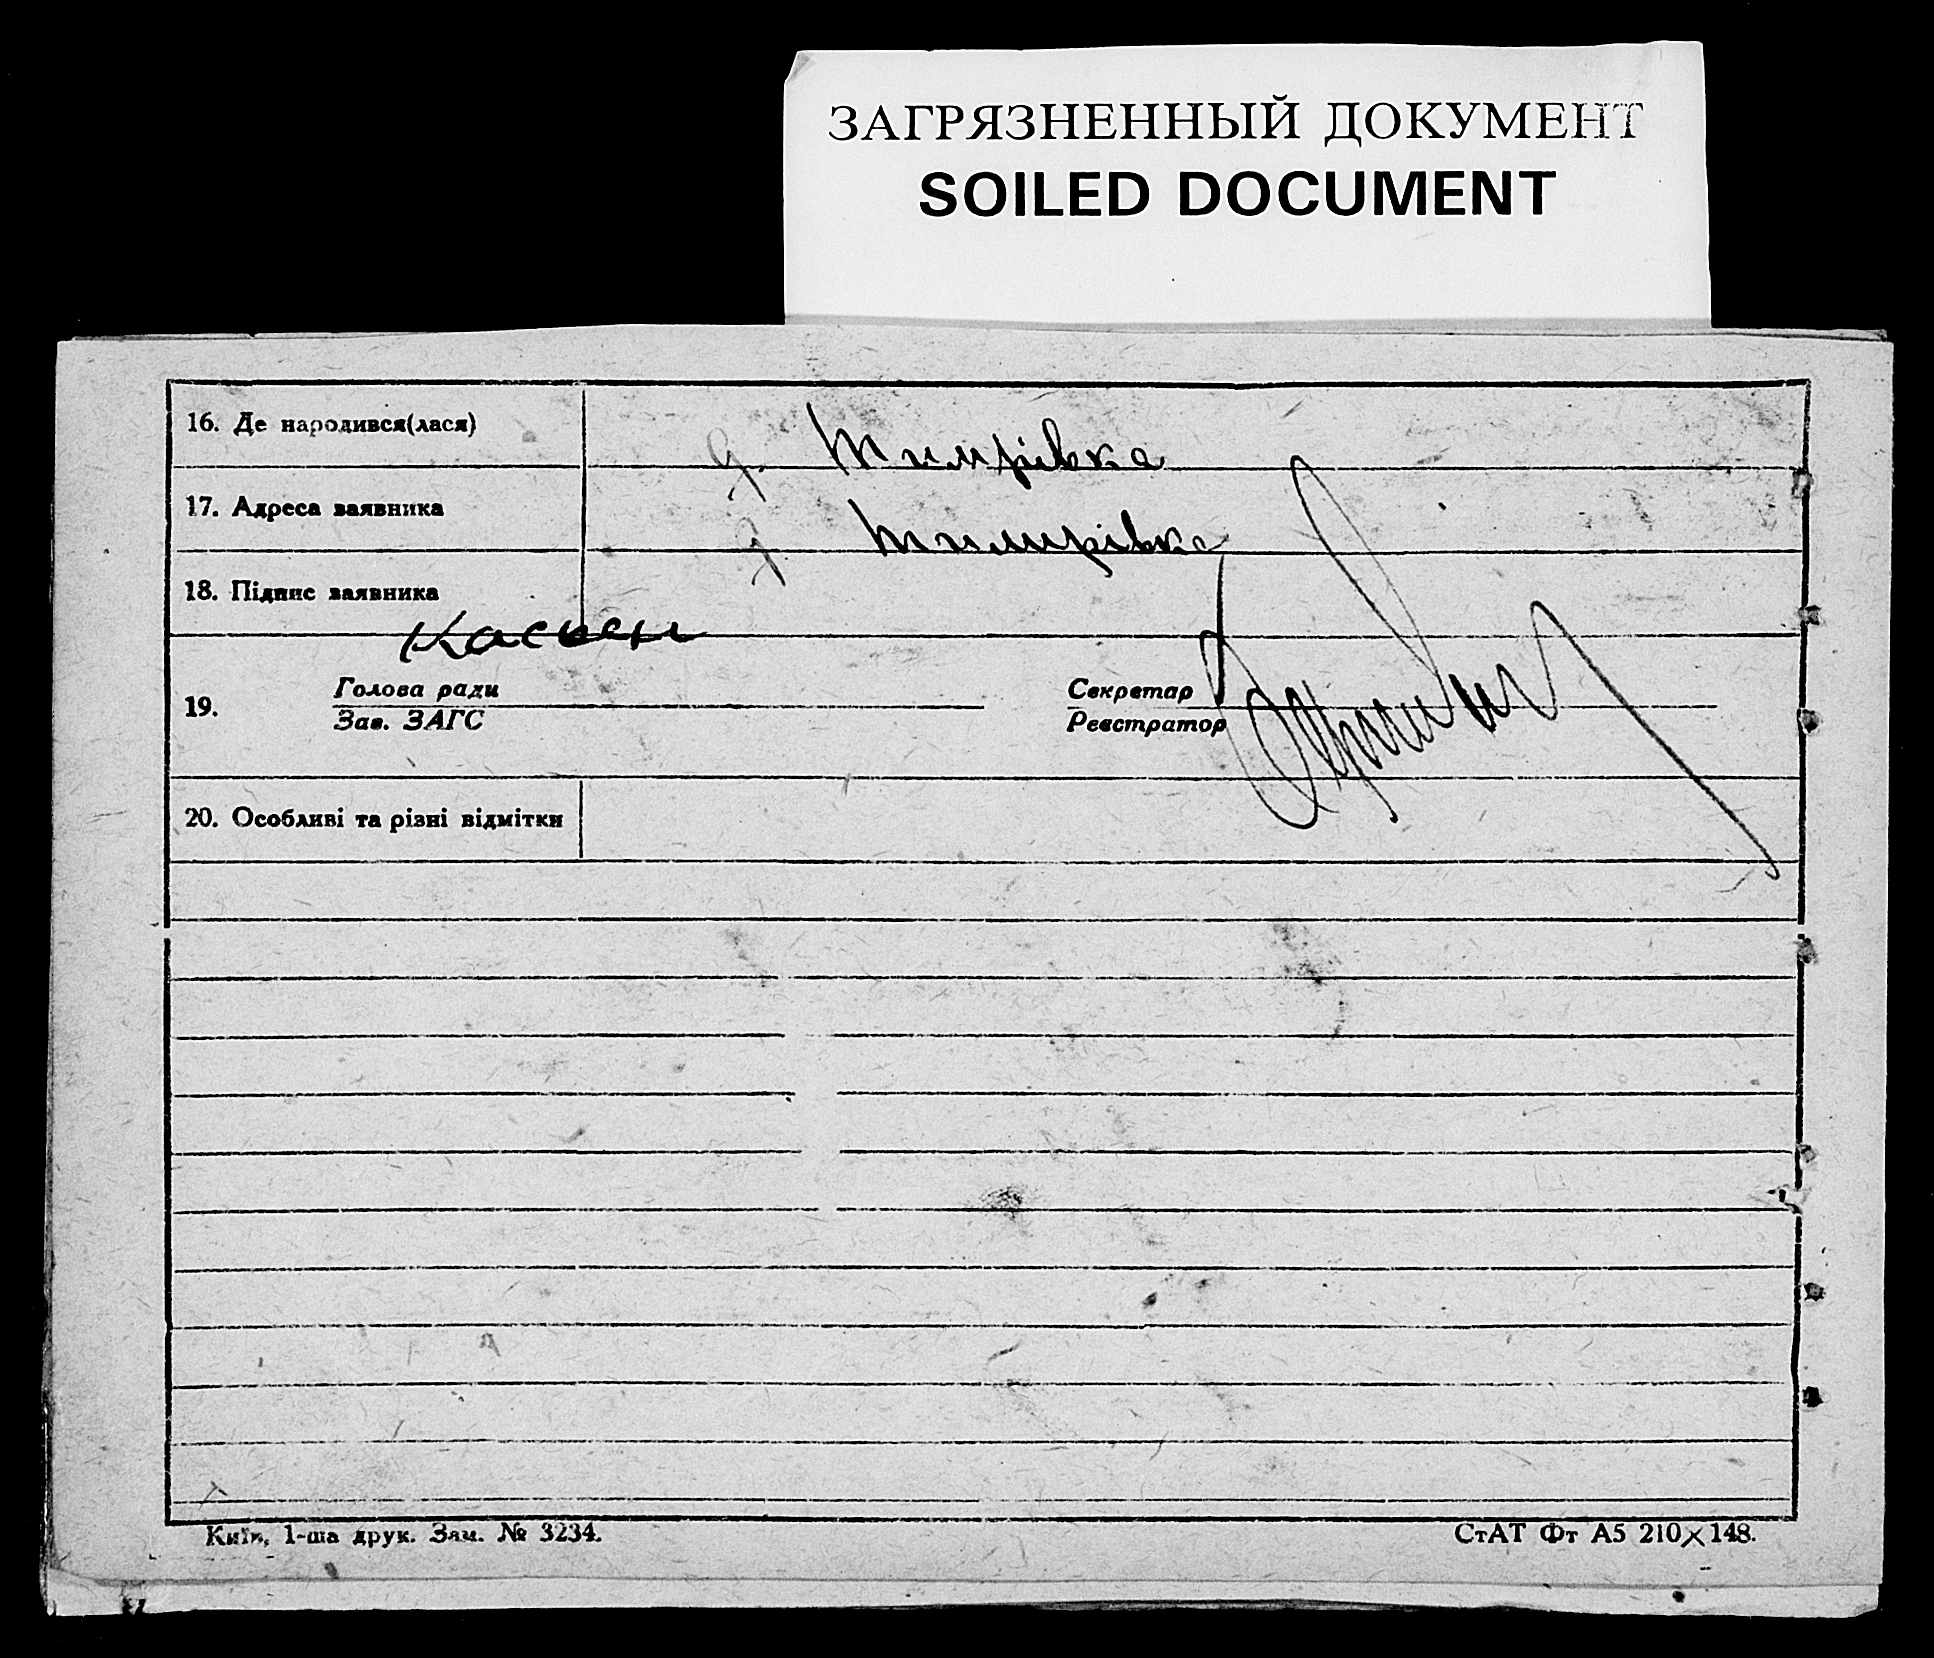 ЗАГРЯЗНЕННЫЙ ДОКУМЕНТ
SOILED DOCUMENT
16. Де народився(лася)
17. Адреса заявника
18. Підпис заявника
19. Голова ради Секретар
Зав. ЗАГС Реєстратор
20. Особливі та різні відмітки
Київ, 1-ша друк. Зам. № 3234.
СтАТ Фт А5 210×148.